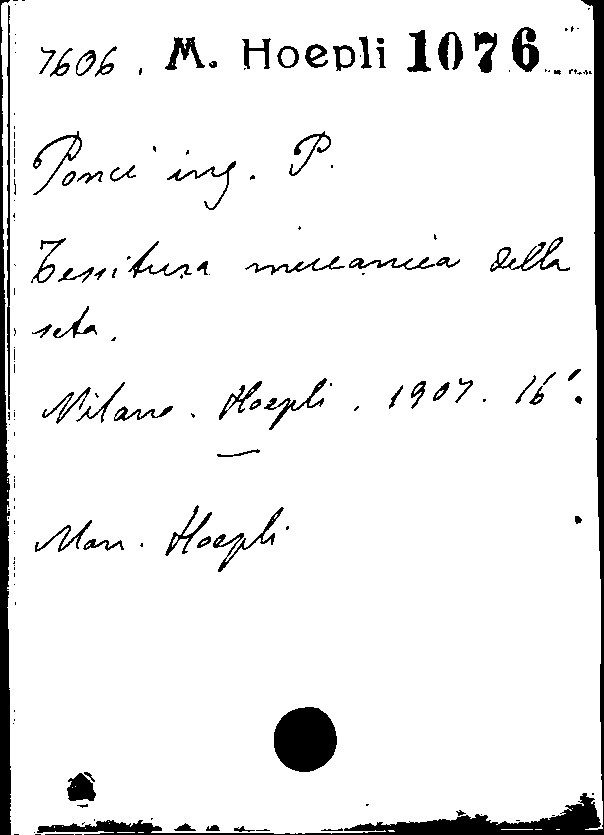 7606. M. Hoepli 1076
Ponci ing. P.
Tessitura meccanica della
seta.
Milano. Hoepli. 1907. 16°.
Man. Hoepli